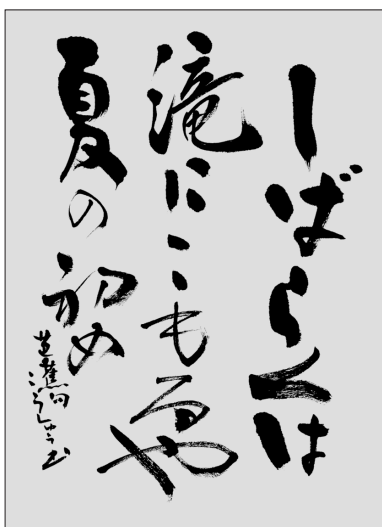 しばらくは
滝にこもるや
夏の初め
芭蕉句